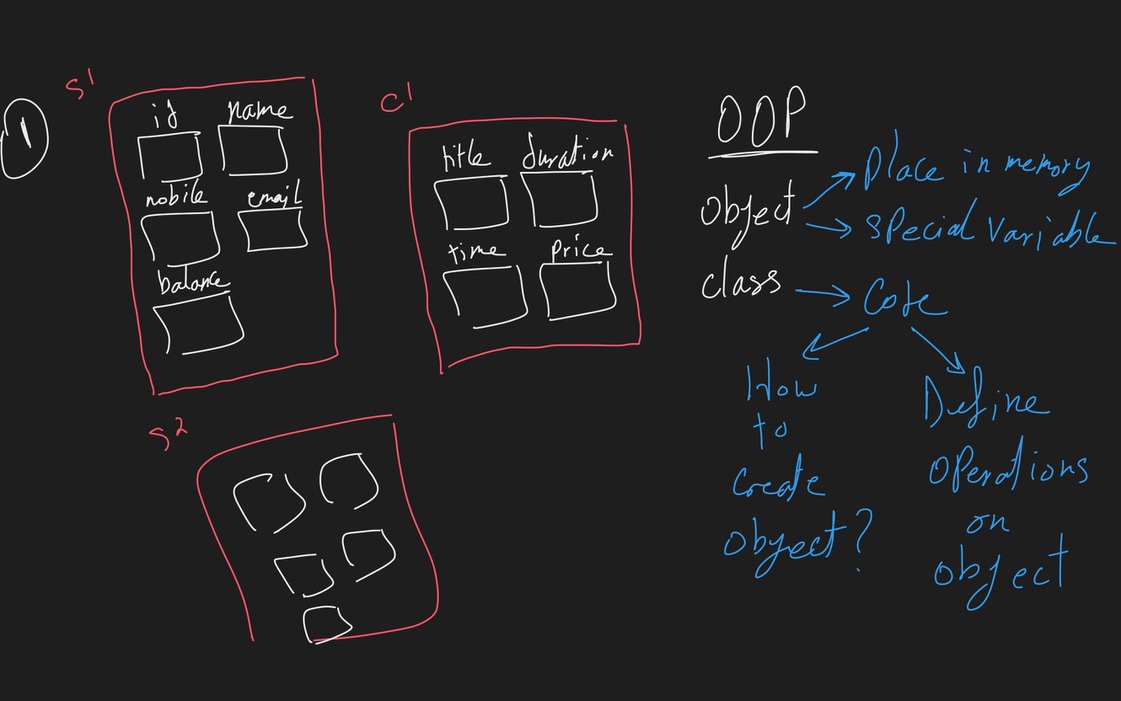 1
S1
id name
mobile email
balance
C1
title duration
time price
S2
OOP
object
Place in memory
special variable
class
Code
How
to
create
object?
Define
operations
on
object